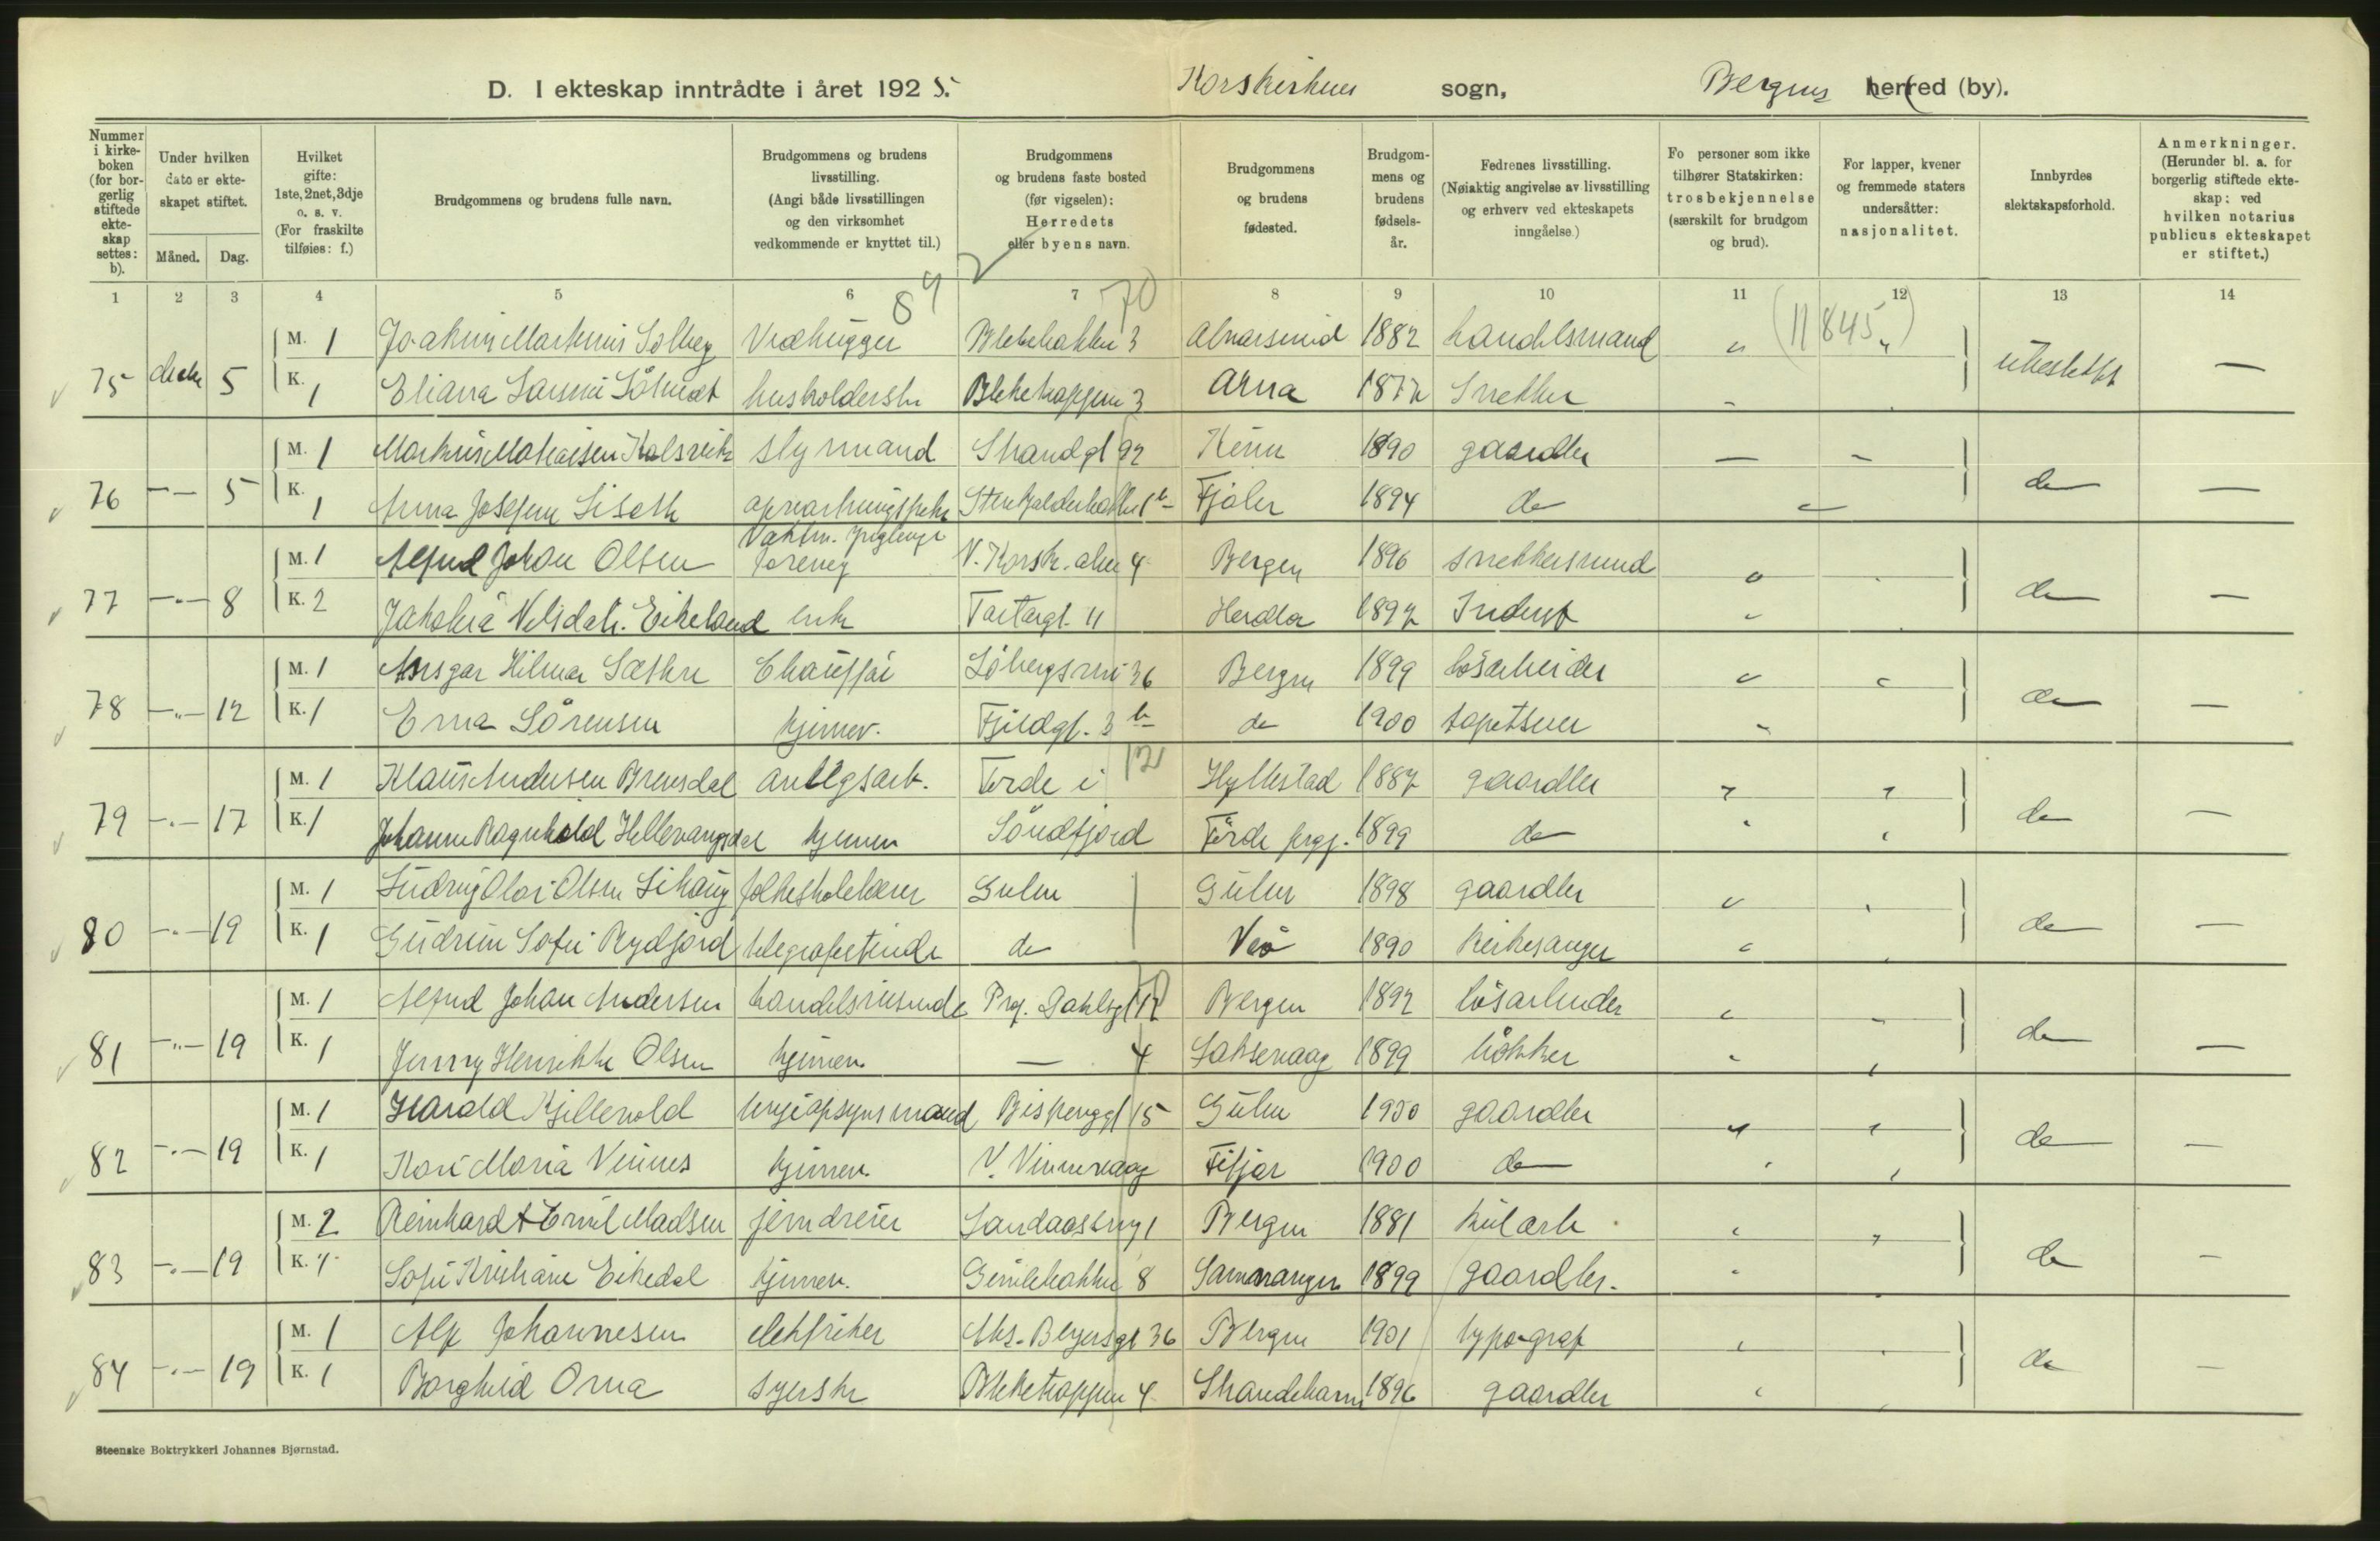 D. I ekteskap inntrådte i året 1925.
Korskirkens sogn,
Bergens herred (by).
Nummer i kirkeboken (for borgerlig stiftede ekteskap settes: b).
Under hvilken dato er ekteskapet stiftet.
Måned. Dag.
Hvilket gifte: 1ste, 2net, 3dje o. s. v. (For fraskilte tilføies: f.)
Brudgommens og brudens fulle navn.
Brudgommens og brudens livsstilling. (Angi både livsstillingen og den virksomhet vedkommende er knyttet til.)
Brudgommens og brudens faste bosted (før vigselen): Herredets eller byens navn.
Brudgommens og brudens fødested.
Brudgommens og brudens fødselsår.
Fedrenes livsstilling. (Nøiaktig angivelse av livsstilling og erhverv ved ekteskapets inngåelse.)
Fo personer som ikke tilhører Statskirken: trosbekjennelse (særskilt for brudgom og brud).
For lapper, kvener og fremmede staters undersåtter: nasjonalitet.
Innbyrdes slektskapsforhold.
Anmerkninger. (Herunder bl. a. for borgerlig stiftede ekteskap: ved hvilken notarius publicus ekteskapet er stiftet.)
1 2 3 4 5 6 7 8 9 10 11 12 13 14
89 70 (11845")
M. 1 Joakim Martinus Solberg Vedhugger Blekebakken 3 1882 handelsmand "
75 5 K. 1 husholderske Bleketrappen 3 Arna 1872 Snekker - ubeslektet —
M. 1 styrmand Strandgt 92 Kinn 1890 gaardbr — -
76 -"- 5 K. 1 Anna Josefine Fjaler 1894 do do —
Vaktm. Ynglinge
M. 1 Alfred Johan Olsen forening V. Korsk. alm 4 Bergen 1896 "
77 -"- 8 K. 2 Jakobia Nilsdtr. Eikeland enke Tartargt. 11 Herdla 1892 " do —
M. 1 Ansgar Hilmar Sæthre Chauffør Løbergsvei 36 Bergen 1899 løsarbeider " "
78 -"- 12 K. 1 Erna Sørensen hjemmev. Fjeldgt. 3 b do 1900 tapetserer - do —
M. 1 Klaus Andersen Brensdal anlegsarb. Førde i 121 Hyllestad 1887 gaardbr " "
79 -"- 17 K. 1 Johanne Ragnhild Hellevangsdal hjemmev Søndfjord Førde prgj. 1899 do " " do —
M. 1 Ludvig Olai Olsen Lihaug folkeskolelærer Gulen Gulen 1898 gaardbr " "
80 -"- 19 K. 1 Gudrun Sofie Rydfjord telegrafistinde do Veø 1890 Kirkesanger " " do —
M. 1 Alfred Johan Andersen handelsreisende Prof. Dahlsgt 12 Bergen 1892 løsarbeider " -
81 -"- 19 K. 1 Jenny Henrikke Olsen hjemmev. — 4 Laksevaag 1899 bøkker " " do —
M. 1 Harald Kjellevold Bispenggt 15 Gulen 1900 gaardbr " "
82 -"- 19 K. 1 Kari Maria Vinnes hjemmev. V. Vinnesvaag Fitjar 1900 do " " do —
M. 2 Reinhardt Emil Madsen jerndreier Landaasvei 1 Bergen 1881 kularb. " "
83 -"- 19 K. 1 Sofie Kristiane Eikedal hjemmev. Gimlebakken 8 Samnanger 1899 gaardbr. " " do —
M. 1 Alf Johannesen elektriker Aks. Beyersgt 36 Bergen 1901 typograf " "
84 -"- 19 K. 1 Borghild Oma syerske Bleketrappen 4 Strandebarm 1896 gaardbr " " do —
Steenske Boktrykkeri Johannes Bjørnstad.